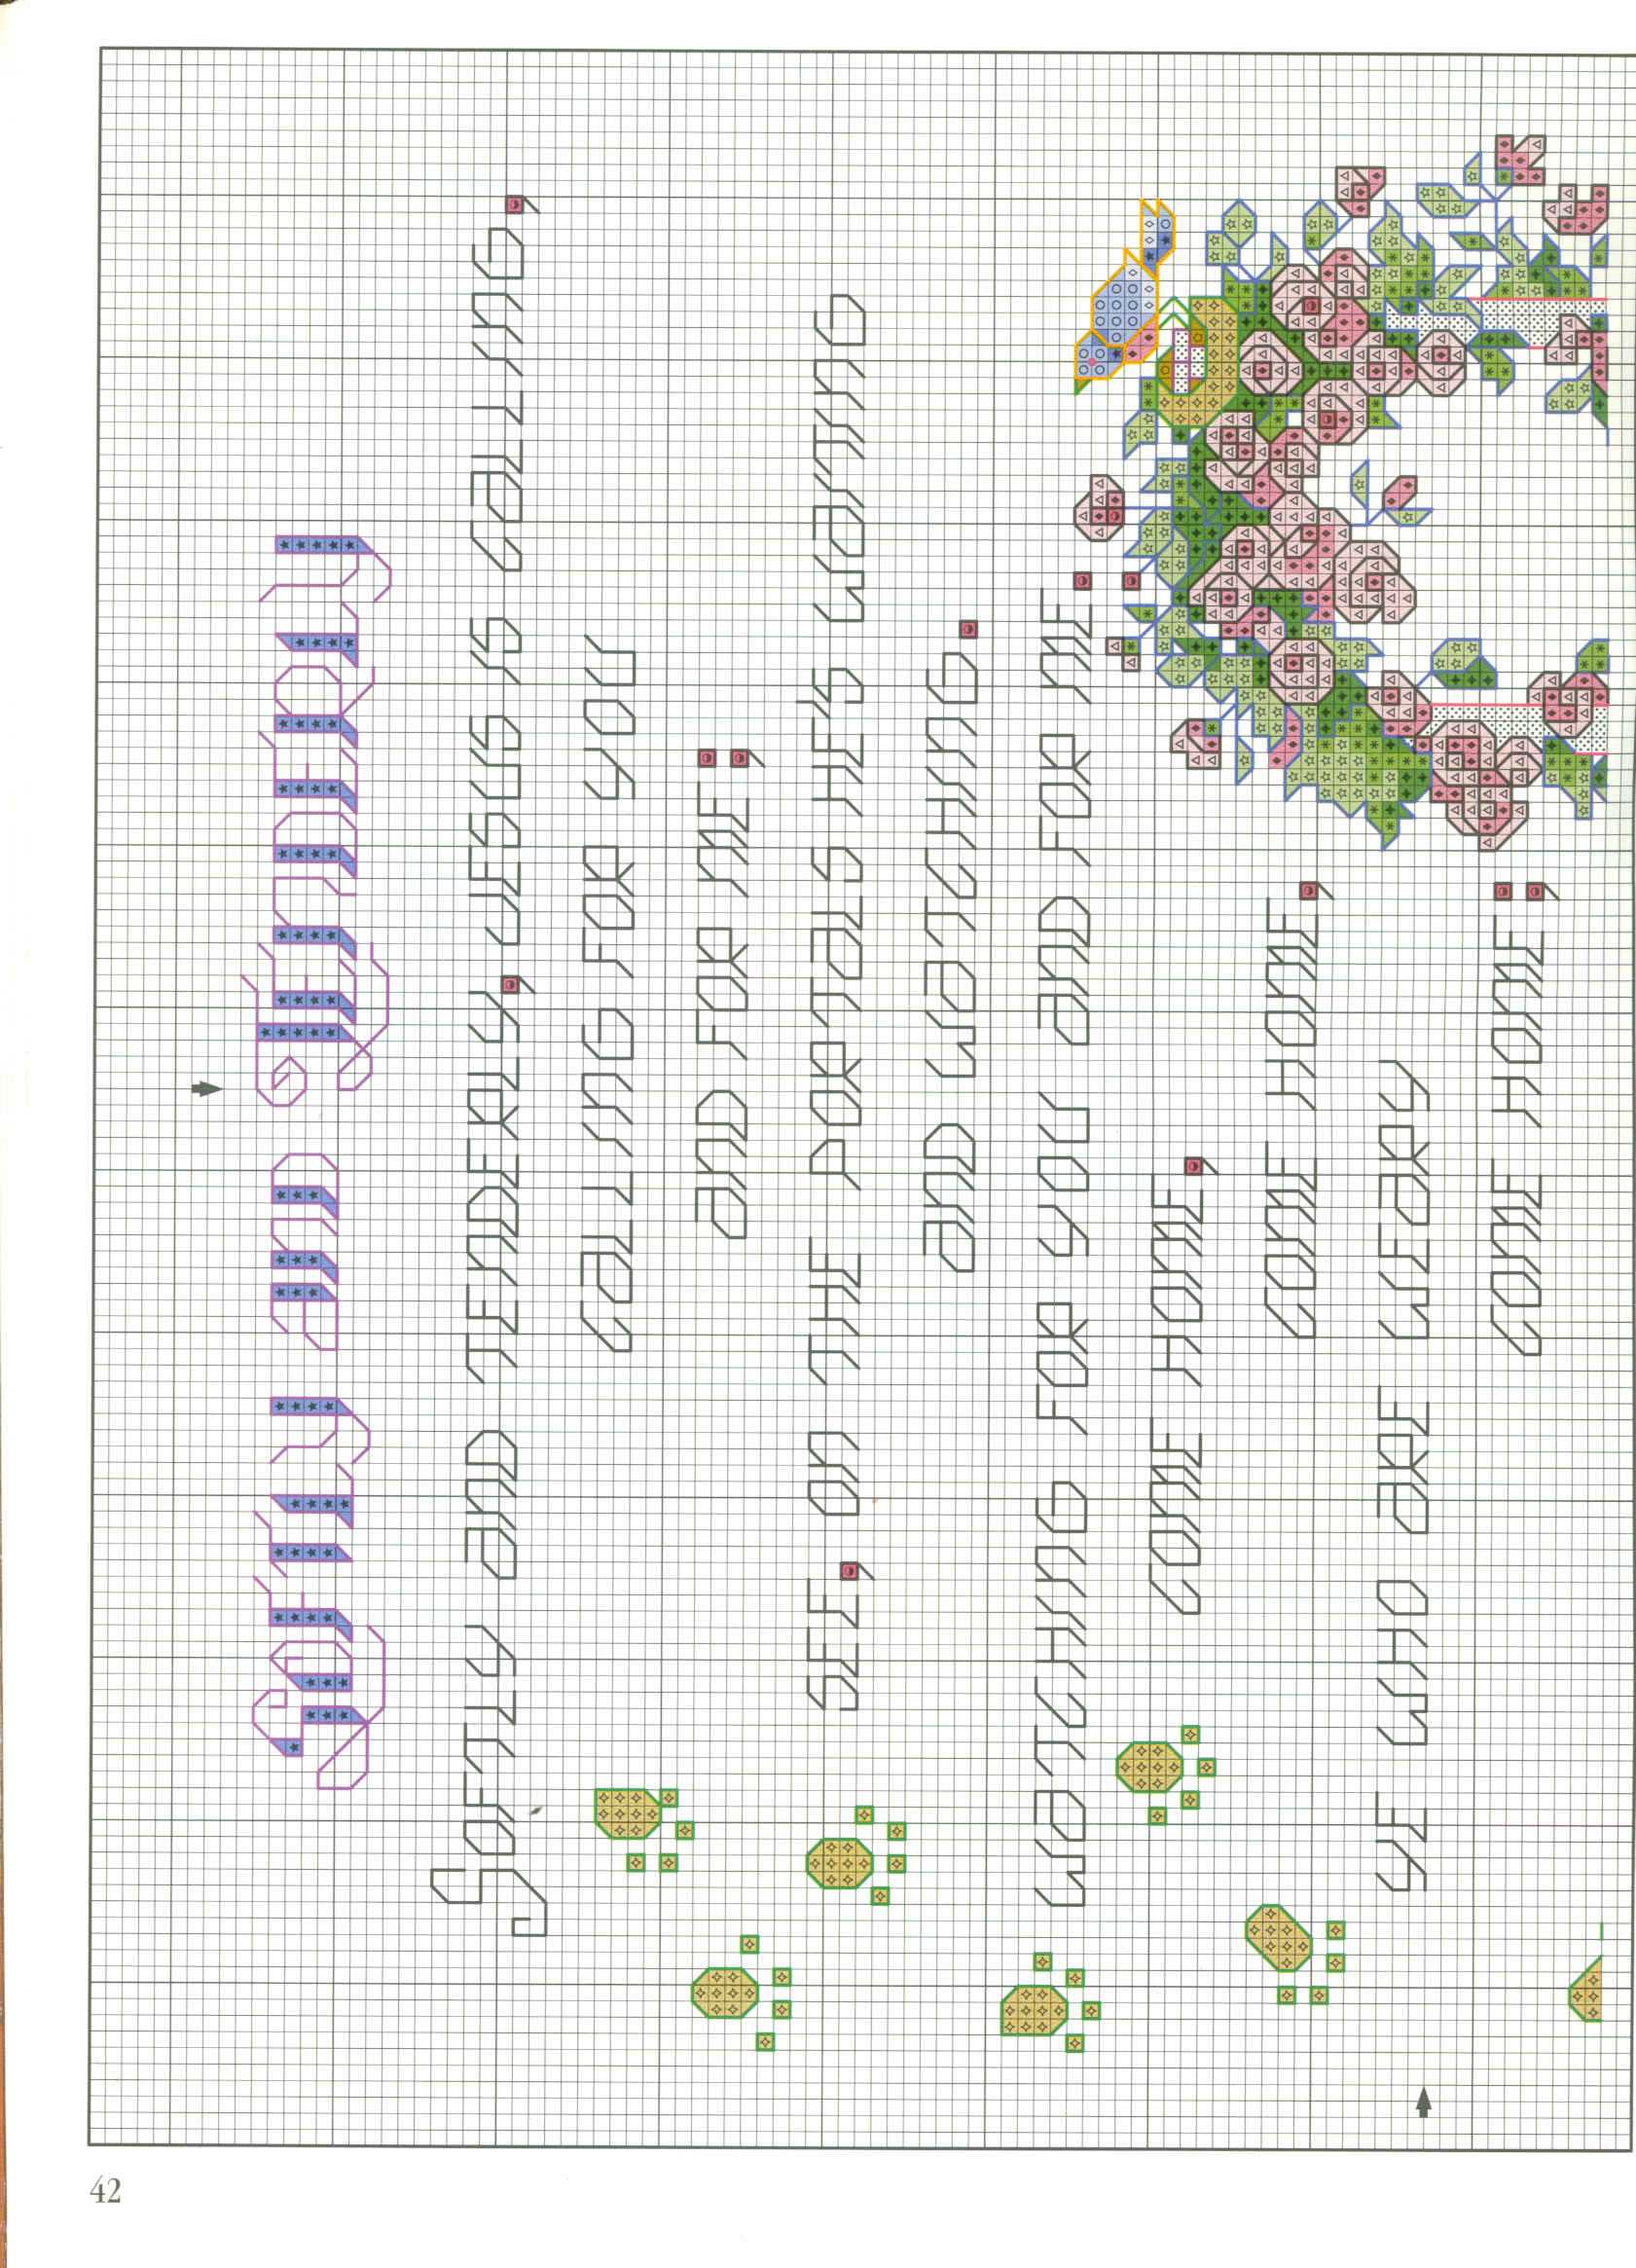 Softly and Tenderly
Softly and tenderly, Jesus is calling,
Calling for you
and for me;
See, on the portals he's waiting
and watching,
Watching for you and for me:
Come home,
Come home,
Ye who are weary
Come home;
42